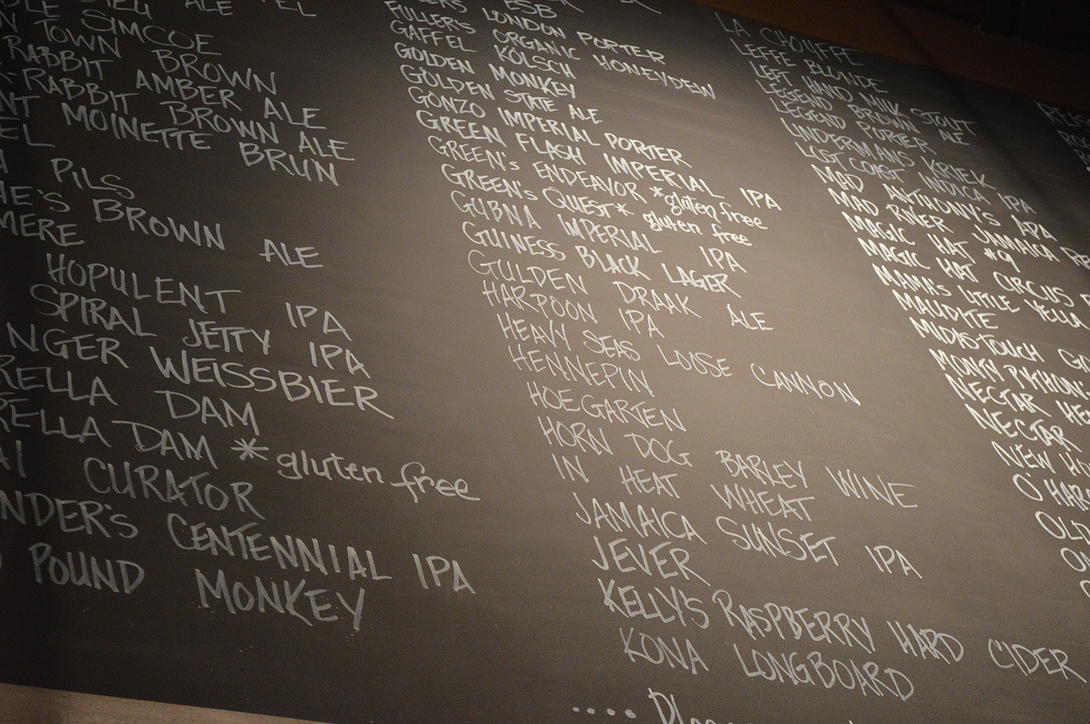 ALE
SIMCOE
TOWN BROWN
RABBIT AMBER ALE
RABBIT BROWN ALE
MOINETTE BRUN
PILS
BROWN ALE
HOPULENT IPA
SPIRAL JETTY IPA
WEISSBIER
DAM
DAM *gluten free
CURATOR
CENTENNIAL IPA
POUND MONKEY
ESB
FULLER'S LONDON PORTER
GAFFEL ORGANIC HONEYDEW
GOLDEN KÖLSCH
GOLDEN MONKEY
GONZO STATE ALE
GREEN IMPERIAL PORTER
GREEN'S FLASH IMPERIAL IPA
GREEN'S ENDEAVOR *gluten free
GUBNA QUEST* gluten free
GUINESS IMPERIAL IPA
GULDEN BLACK LAGER
HARPOON DRAAK ALE
HEAVY IPA
HENNEPIN SEAS LOOSE CANNON
HOEGARTEN
HORN DOG BARLEY WINE
IN HEAT WHEAT
JAMAICA SUNSET IPA
JEVER
KELLY'S RASPBERRY HARD CIDER
KONA LONGBOARD
LA CHOUFFE
LEFFE BLONDE
LEFT HAND MILK STOUT
LEGEND BROWN ALE
LEGEND PORTER
LINDERMANS KRIEK
LOST COAST INDICA IPA
MAD ANTHONY'S APA
MAD RIVER JAMAICA
MAGIC HAT #9
MAGIC HAT CIRCUS
MAMA'S LITTLE YELLA
MAUDITE
MIDAS TOUCH
MONTY PYTHON
NECTAR
NECTAR
NEW
O'HAR
OLD